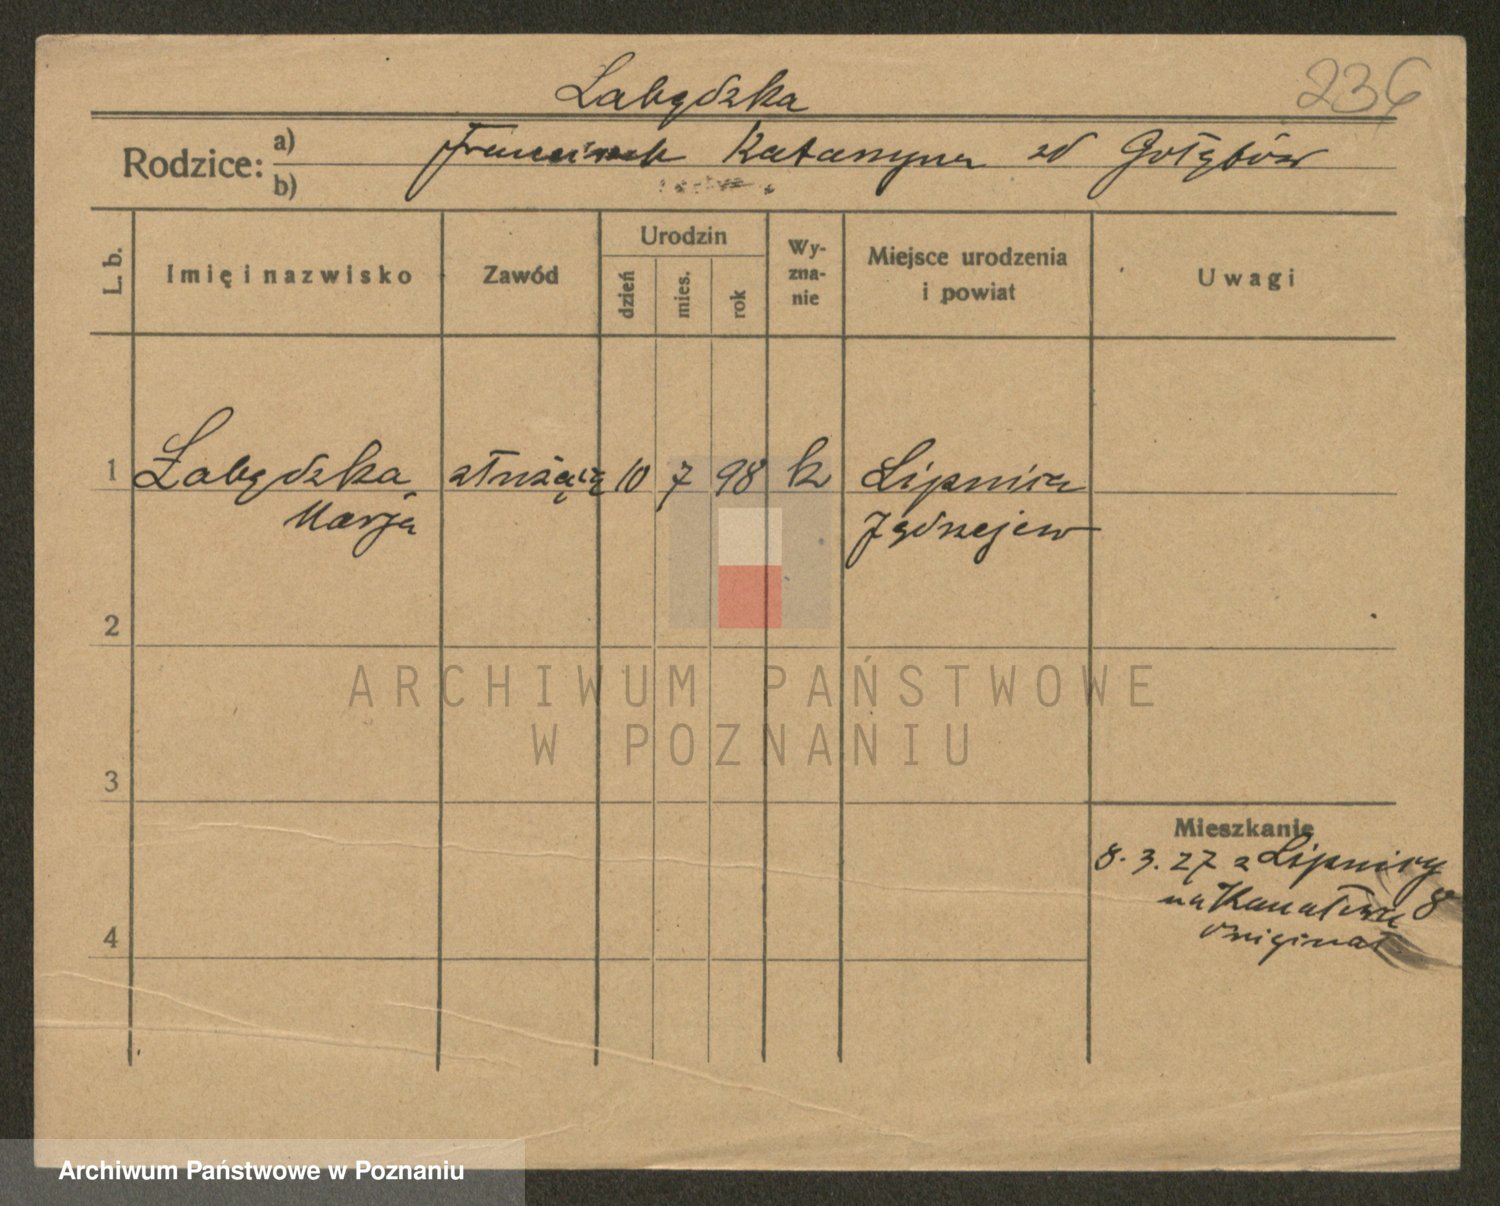 236
Łabędzka
Rodzice: a) Franciszek Katarzyna zd Gołębów
b)
L. b.
Imię i nazwisko
Zawód
Urodzin
dzień
mies.
rok
Wy-
zna-
nie
Miejsce urodzenia
i powiat
Uwagi
1 Łabędzka służąca 10 7 98 k Lipnica
Marja Jędrzejew
2
3
4
Mieszkanie
8. 3. 27 z Lipnicy
na Kanałową 8
original
ARCHIWUM PAŃSTWOWE
W POZNANIU
Archiwum Państwowe w Poznaniu